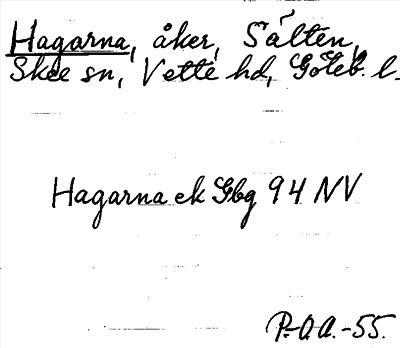 Hagarna, åker, Sälten,
Skee sn, Vette hd, Göteb. l.
Hagarna ek Gbg 94 NV
P.O.A.-55.